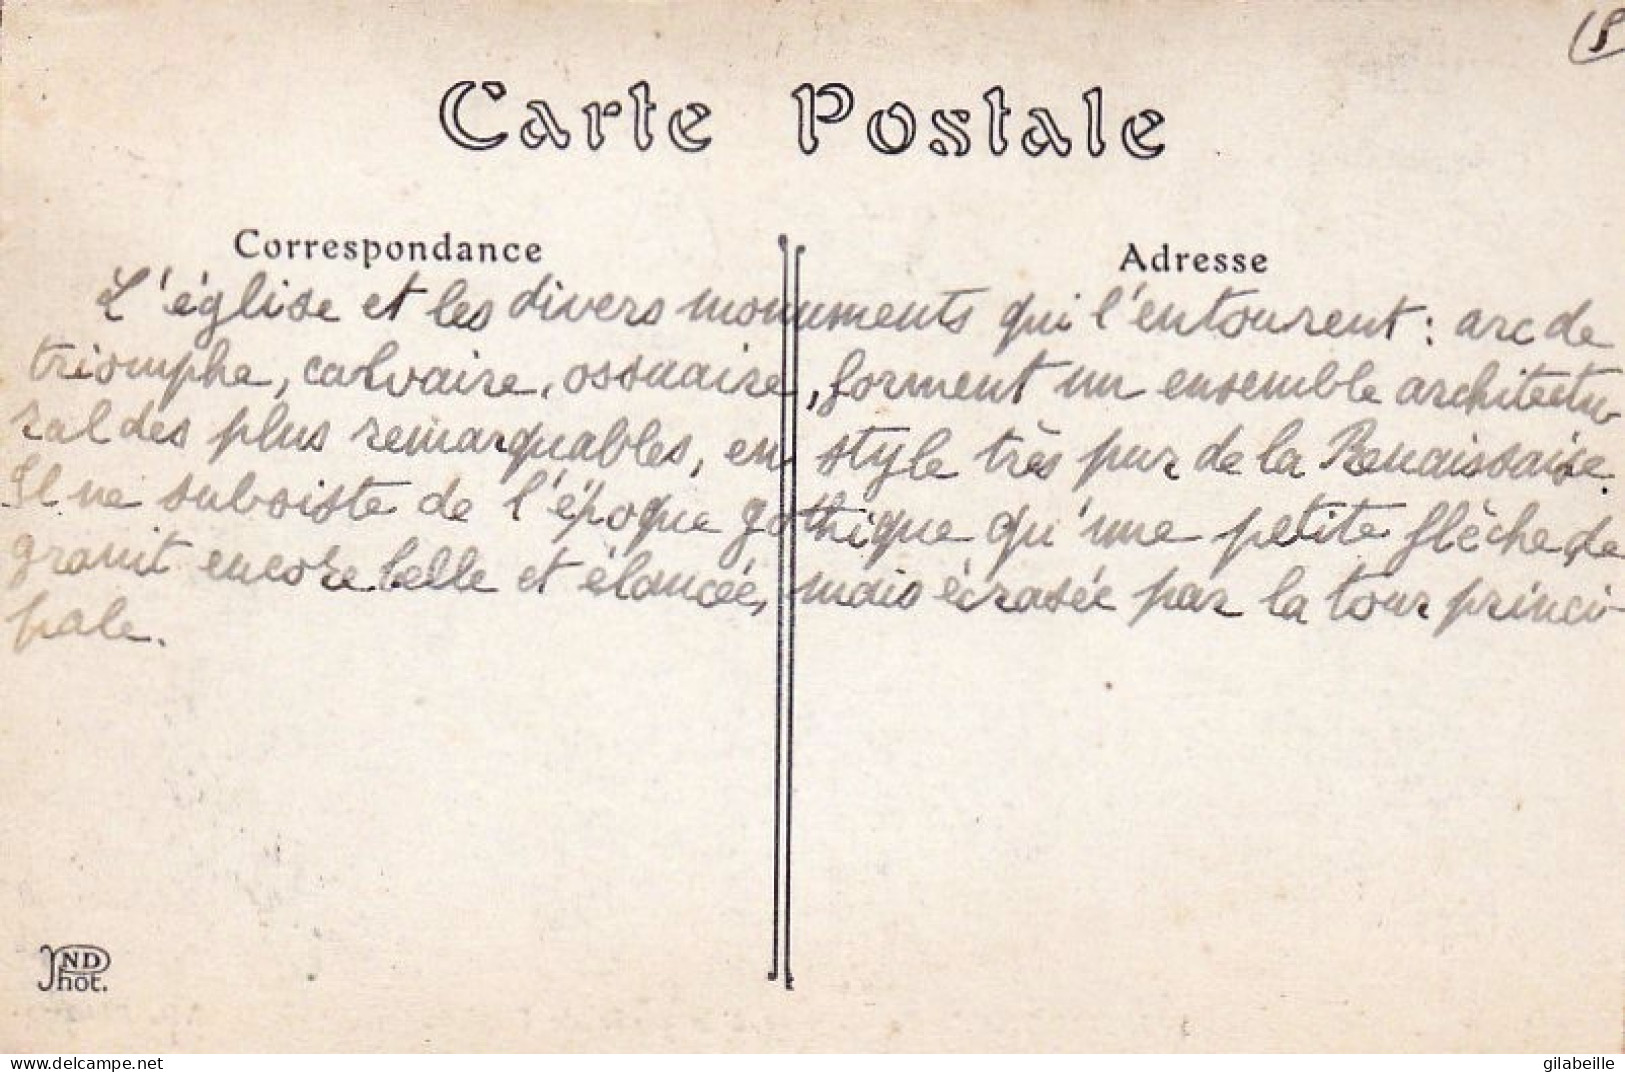 Carte Postale
Correspondance
Adresse
L'église et les divers monuments qui l'entourent : arc de
triomphe, calvaire, ossuaire, forment un ensemble architectu-
ral des plus remarquables, en style très pur de la Renaissaice.
Il ne subsiste de l'époque gothique qu'une petite flèche de
granit encore belle et élancée, mais écrasée par la tour princi-
pale.
ND
Phot.
delcampe.net
gilabeille